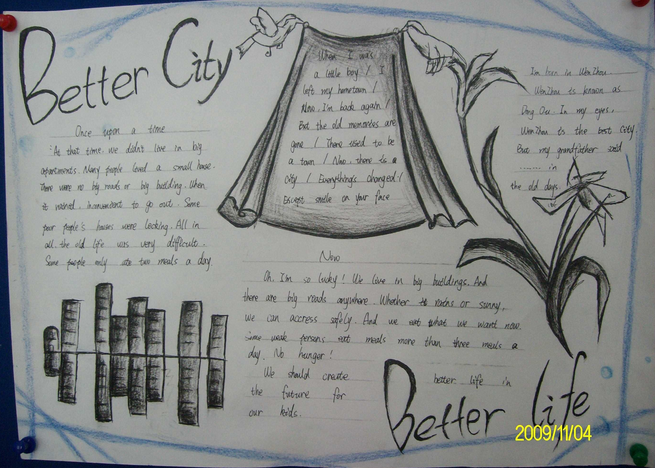 Better City
Once upon a time
As that time, we didn't love in big
apartments. Many people loved a small house.
There were no big roads or big building. When
it rained, inconvenient to go out. Some
poor people's houses were leaking. All in
all, the old life was very difficult.
Some people only ate two meals a day
When I was
a little boy / I
left my hometown /
Now, I'm back again /
But the old memories are
gone / There used to be
a town / Now, there is a
city / Everything's changed /
Except smile on your face
I'm born in WenZhou
WenZhou is known as
Dong Ou. In my eyes,
WenZhou is the best city
But my grandfather said
in
the old days
Now
Oh, I'm so lucky! We live in big buildings. And
there are big roads anywhere. Whether to rains or sunny,
we can accress safely. And we eat what we want now.
Some weak persons eat meals more than three meals a
day. No hunger!
We should create better life in
the future for
our kids.
Better life
2009/11/04